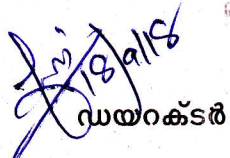 18/9/18
ഡയറക്ടർ